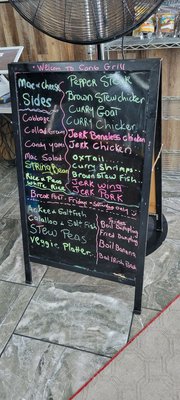 Welcome to Carib Grill
Mac n' Cheese
Sides
Cabbage
Collard Green
Candy yams
Mac Salad
String Bean
Rice n Peas
White Rice
Pepper Steak
Brown Stew chicken
Curry Goat
Curry Chicken
Jerk Boneless chicken
Jerk Chicken
Oxtail
Curry Shrimps
Brown Stew Fish
Jerk Wing
Jerk Pork
Breakfast - Friday - Saturday Only
Ackee n Saltfish
Callaloo n Salt Fish
Stew Peas
Veggie Platter
Sides
Boil Dumpling
Fried Dumpling
Boil Banana